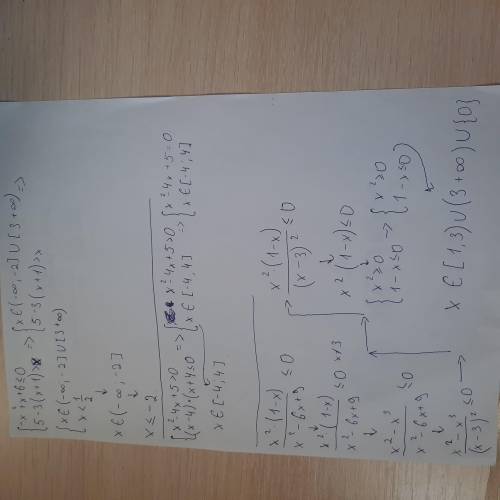 {-x²+x+6≤0
{5-3(x+1)>x => {x∈(-∞,-2]∪[3+∞)
{5-3(x+1)>x =>
{x∈(-∞,-2]∪[3+∞)
{x<1/2
x∈(-∞;-2]
x≤-2
{x²4x+5>0
{(x-4)·(x+4≤0 => {x²-4x+5>0
{x∈[-4,4] => {x²-4x+5=0
{x∈[-4;4]
x∈[-4,4]
x²·(1-x)/x²-6x+9 ≤0
x²(1-x)/x²-6x+9 ≤0 x≠3
x²-x³/x²-6x+9 ≤0
x²-x³/(x-3)² ≤0 →
x²(1-x)/(x-3)² ≤0
x²(1-x)≤0
{x²≥0
{1-x≤0 → {x²≥0
{1-x≤0)
x∈[1,3)∪(3+∞)∪{0}